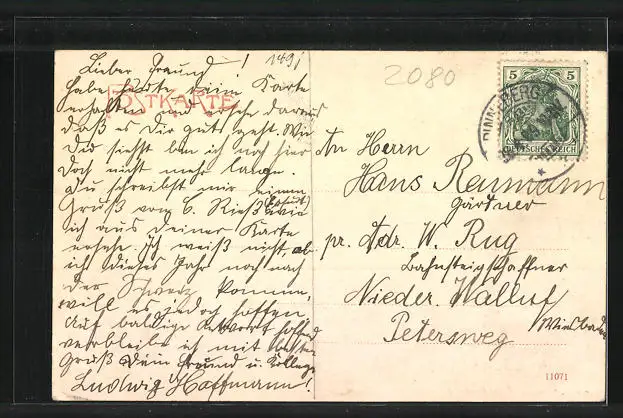 Lieber Freund! 1491
habe heute deine Karte
erhalten und ersehe daraus
daß es Dir gut geht. Wie
Du siehst bin ich noch hier
doch nicht mehr lange.
Du schreibst mir einen
Gruß von C. Rieß wie
ich aus deiner Karte
ersehe. Ich weiß nicht, ob
ich dieses Jahr noch nach
der Schweiz komme,
will es jedoch hoffen.
Auf baldige Antwort hoffend
verbleibe ich mit besten
Gruß Dein Freund u. Kollege
Ludwig Hoffmann!
POSTKARTE
2080
5 5
DEUTSCHES REICH
PINNEBERG
An Herrn
Hans Raumann
Gärtner
pr. Adr. W. Rug
Bahnsteigschaffner
Nieder-Walluf
Wiesbaden
Petersweg
11071